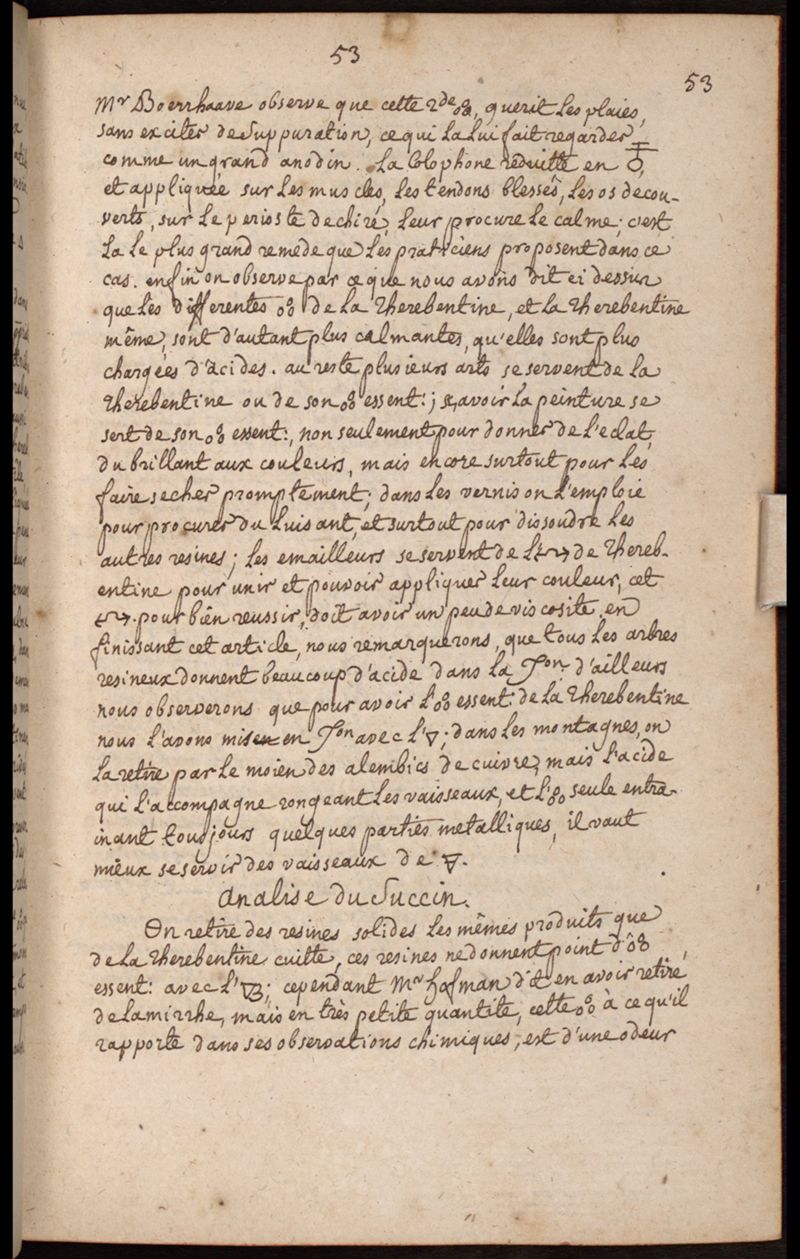 53
53
Mr Boerrhaave observe que cette 2de 🝆, querit les plaies,
sans exciter de Suppuration, ce qui la lui fait regarder
comme un grand anodin. La Colophone reduitte en
et appliquée sur les muscles, les tendons blessés, les os decou-
verts, sur le perioste dechiré, leur procure le calme; c'est
la le plus grand remede que les praticiens proposent dans ce
cas. enfin on observe par ce que nous avons dit ci dessus
que les differentes 🝆 de la therebentine, et la therebentine
même, sont d'autant plus calmantes, qu'elles sont plus
chargées d'acides. au reste plusieurs arts se servent de la
therebentine ou de son 🝆 essent:; sçavoir la peinture se
sert de son 🝆 essent:, non seulement pour donner de l'eclat,
du brillant aux couleurs, mais encore surtout pour les
faire secher promptement; dans les vernis on l'emploie
pour procurer du luisant, et surtout pour dissoudre les
autres resines; les emailleurs se servent de l' de thereb-
entine pour unir et pouvoir appliquer leur couleur, cet
pour bien reussir, doit avoir un peu de viscosité, en
finissant cet article, nous remarquerons, que tous les arbres
resineux donnent beaucoup d'acide dans la d'ailleurs
nous observerons que pour avoir l'🝆 essent: de la therebentine
nous l'avons mise en avec l'🜄; dans les montagnes, on
la retire par le moien des alembics de cuivre, mais l'acide
qui l'accompagne rongeant les vaisseaux, et l'🝆 seule entra-
inant tousjours quelques parties metalliques, il vaut
mieux se servir des vaisseaux de 🜃.
Analise du Succin.
On retire des resines solides les mêmes produits que
de la therebentine cuitte, ces resines ne donnent point d'🝆
essent: avec l'; cependant Mr hofman dit en avoir retiré
de la mirrhe, mais en très petite quantité, cette 🝆 à ce qu'il
rapporte dans ses observations chimiques, est d'une odeur